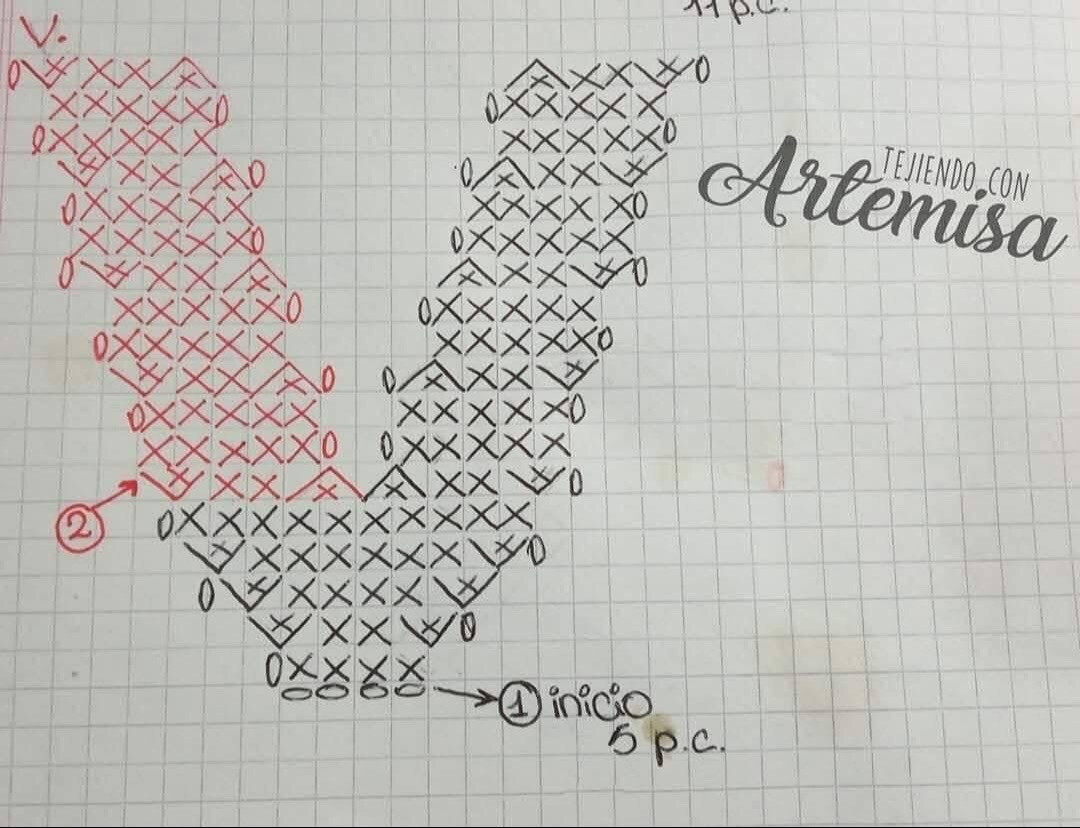 11 p.c.
V.
TEJIENDO CON
Artemisa
2
1 inicio
5 p.c.